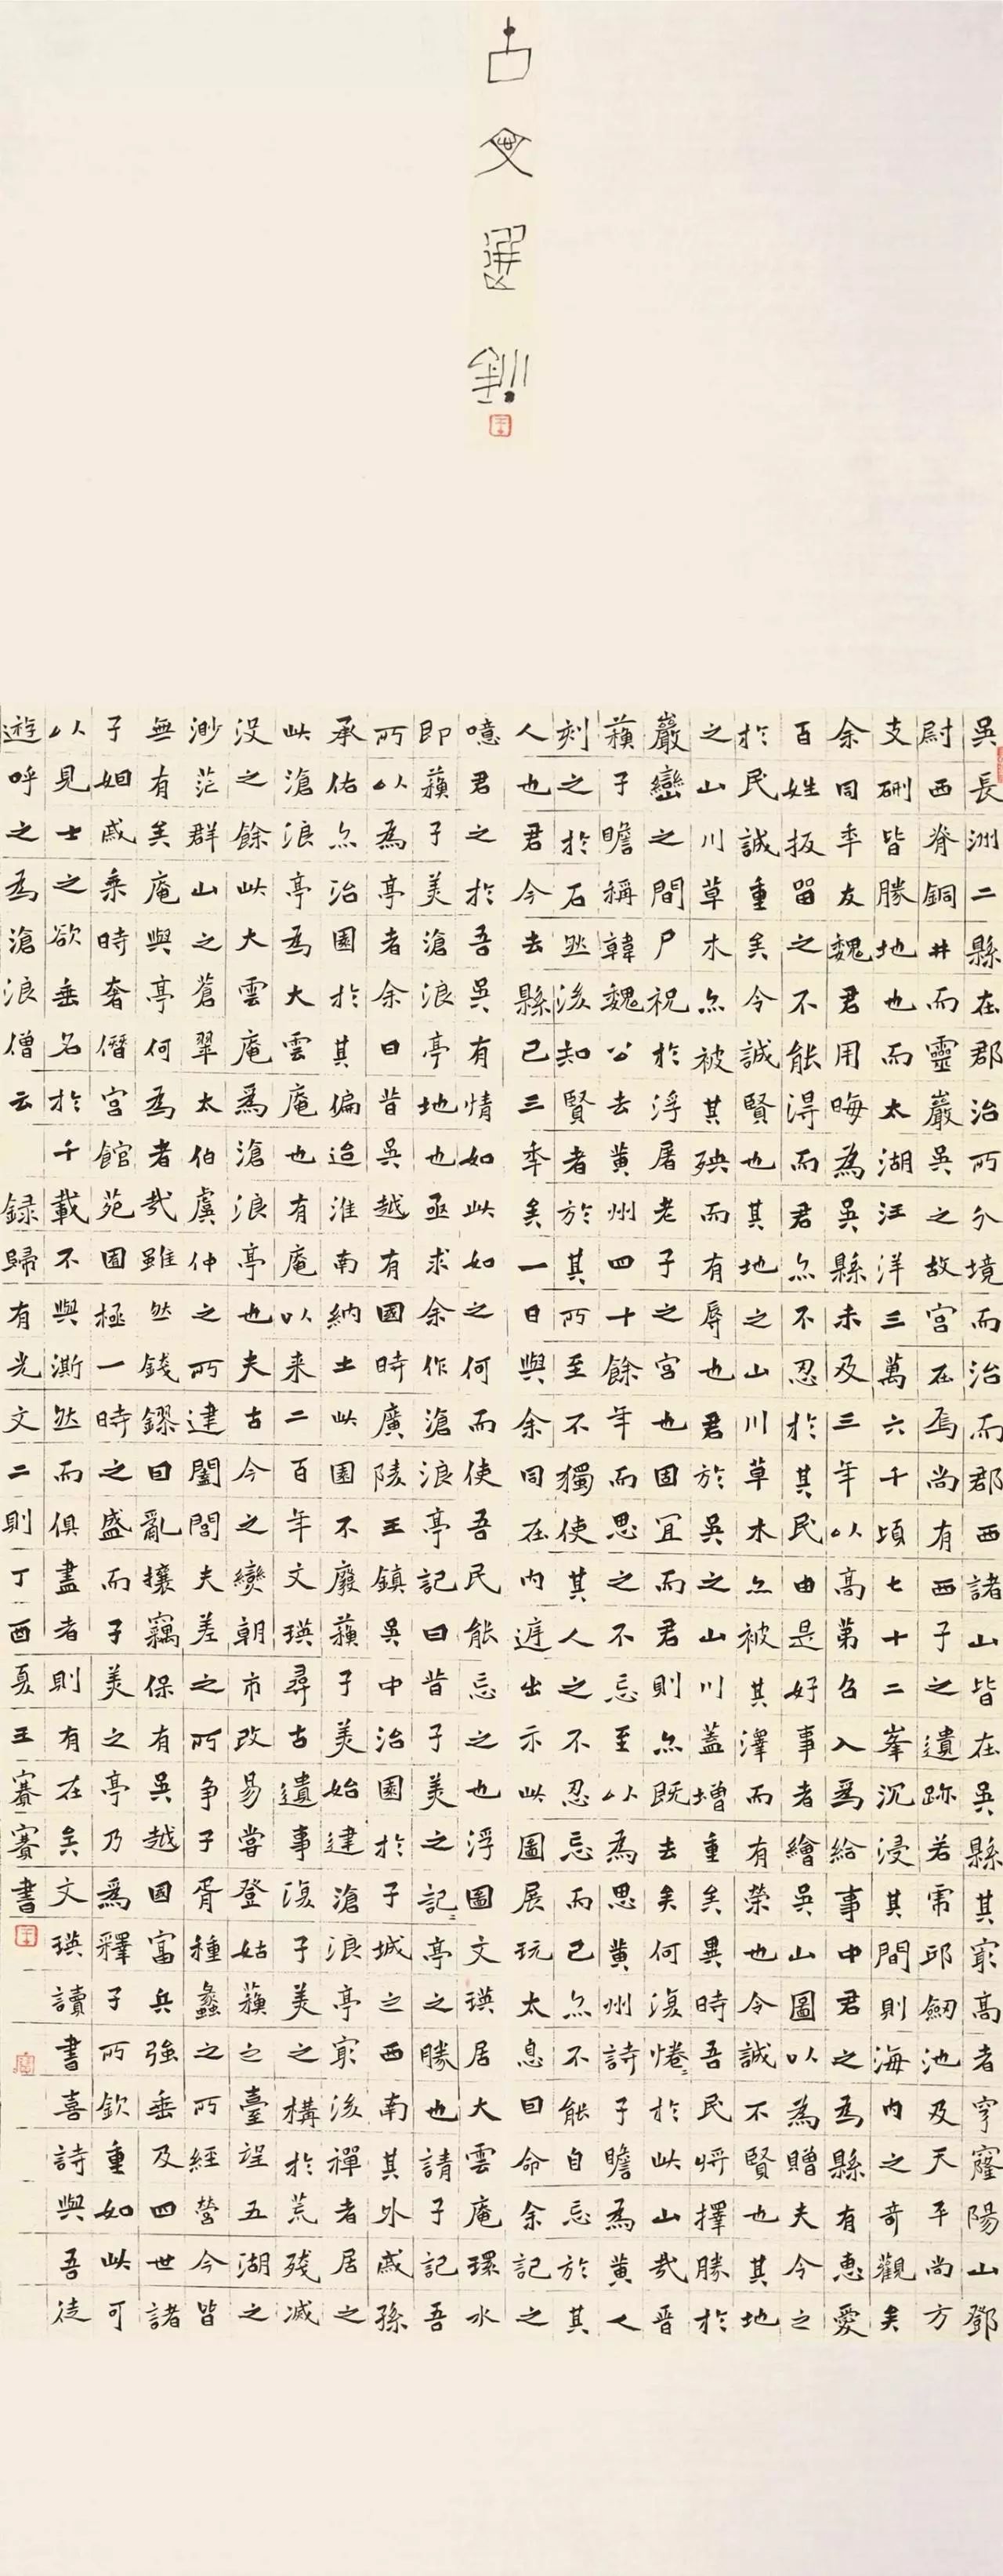 古文選鈔
吳長洲二縣在郡治所分境而治而郡西諸山皆在吳縣其最高者穹窿陽山鄧
尉西脊銅井而靈巖吳之故宮在焉尚有西子之遺跡若虎邱劒池及天平尚方
支硎皆勝地也而太湖汪洋三萬六千頃七十二峯沉浸其間則海內之奇觀矣
余同年友魏君用晦為吳縣未及三年以高第召入為給事中君之為縣有惠愛
百姓扳留之不能得而君亦不忍於其民由是好事者繪吳山圖以為贈夫今之
於民誠重矣今誠賢也其地之山川草木亦被其澤而有榮也令誠不賢也其地
之山川草木亦被其殃而有辱也君於吳之山川蓋增重矣異時吾民將擇勝於
巖巒之間尸祝於浮屠老子之宮也固宜而君則亦既去矣何復惓惓於此山哉昔
蘇子瞻稱韓魏公去黃州四十餘年而思之不忘至以為思黃州詩子瞻為黃人
刻之於石然後知賢者於其所至不獨使其人之不忍忘而已亦不能自忘於其
人也君今去縣已三年矣一日與余同在內庭出示此圖展玩太息因命余記之
噫君之於吾吳有情如此如之何而使吾民能忘之也浮圖文瑛居大雲庵環水
即蘇子美滄浪亭地也亟求余作滄浪亭記曰昔子美之記記亭之勝也請子記吾
所以為亭者余曰昔吳越有國時廣陵王鎮吳中治園於子城之西南其外戚孫
承佑亦治園於其偏迨淮南納土此園不廢蘇子美始建滄浪亭最後禪者居之
此滄浪亭為大雲庵也有庵以來二百年文瑛尋古遺事復子美之構於荒殘滅
沒之餘此大雲庵為滄浪亭也夫古今之變朝市改易嘗登姑蘇之臺望五湖之
渺茫群山之蒼翠太伯虞仲之所建闔閭夫差之所爭子胥種蠡之所經營今皆
無有矣庵與亭何為者哉雖然錢鏐因亂攘竊保有吳越國富兵強垂及四世諸
子姻戚乘時奢僭宮館苑囿極一時之盛而子美之亭乃為釋子所欽重如此可
以見士之欲垂名於千載不與澌然而俱盡者則有在矣文瑛讀書喜詩與吾徒
遊呼之為滄浪僧云 錄歸有光文二則丁酉夏王賽賽書